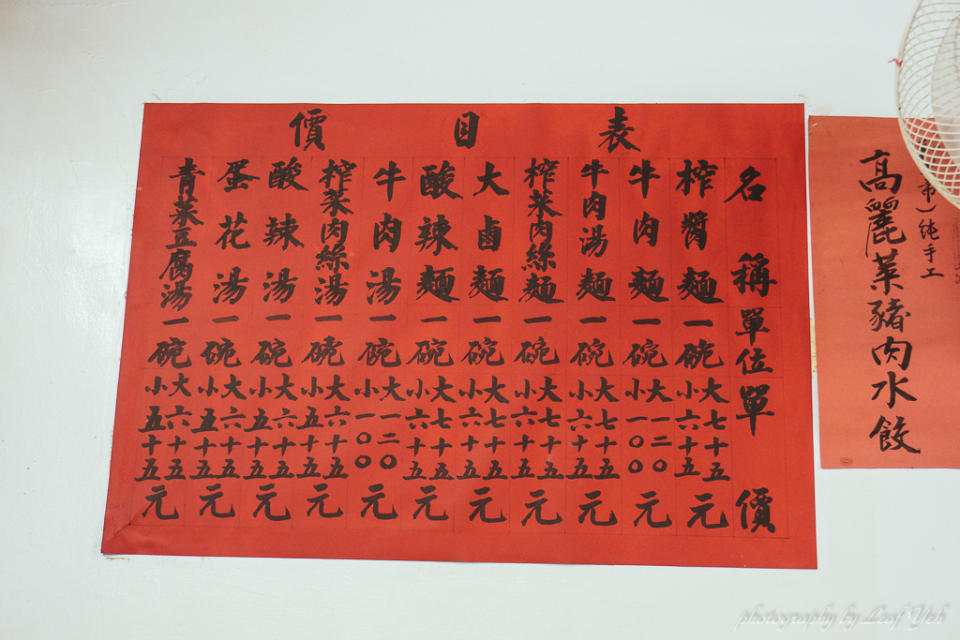 價目表
名稱 單位 單價
榨醬麵 一碗 大七十五 小六十五 元
牛肉麵 一碗 大一二〇 小一〇〇 元
牛肉湯麵 一碗 大七十五 小六十五 元
榨菜肉絲麵 一碗 大七十五 小六十五 元
大鹵麵 一碗 大七十五 小六十五 元
酸辣麵 一碗 大七十五 小六十五 元
牛肉湯 一碗 大一二〇 小一〇〇 元
榨菜肉絲湯 一碗 大六十五 小五十五 元
酸辣湯 一碗 大六十五 小五十五 元
蛋花湯 一碗 大六十五 小五十五 元
青菜豆腐湯 一碗 大六十五 小五十五 元
純手工
高麗菜豬肉水餃
photography by Leaf Yeh